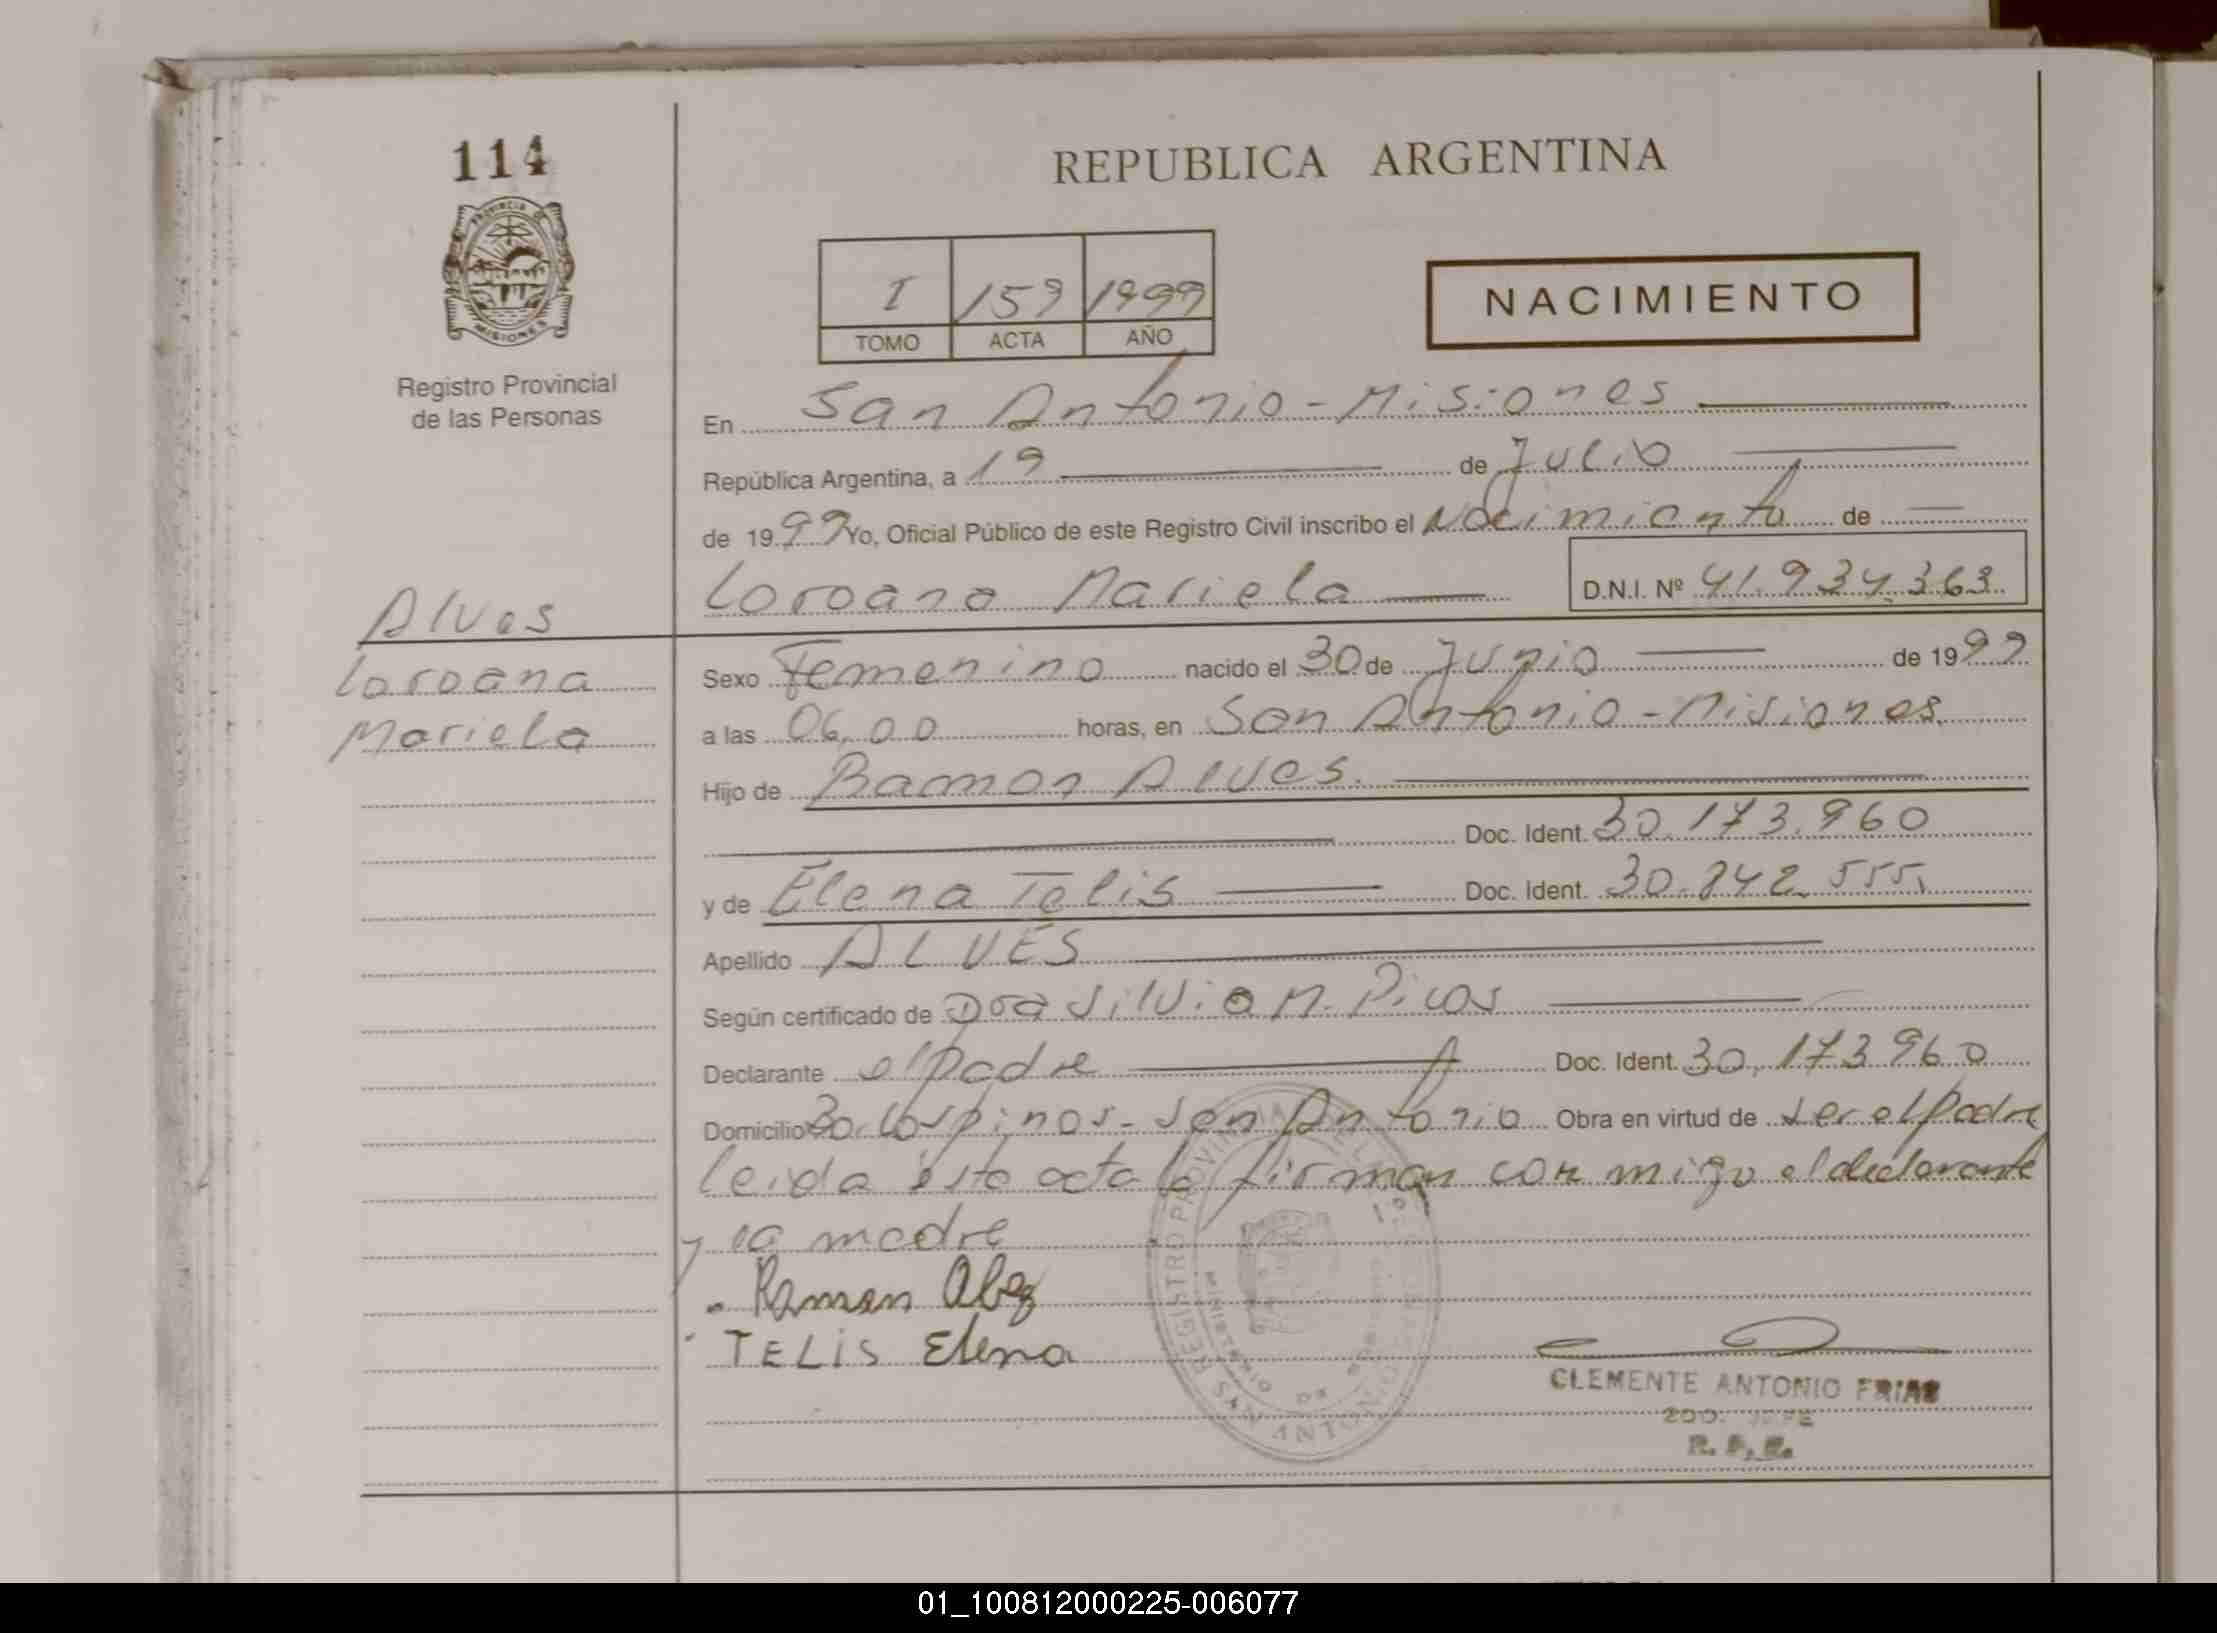 114
REPUBLICA ARGENTINA
PROVINCIA DE
MISIONES
I 159 1999
TOMO ACTA AÑO
NACIMIENTO
Registro Provincial
de las Personas
En San Antonio - Misiones
República Argentina, a 19 de Julio
de 1999 Yo, Oficial Público de este Registro Civil inscribo el Nacimiento de
Loroana Mariela D.N.I. Nº 41.934.363
Alves
Loroana
Mariela
Sexo Femenino nacido el 30 de Junio de 1999
a las 06,00 horas, en San Antonio - Misiones.
Hijo de Ramon Alves.
Doc. Ident. 30.173.960
y de Elena Telis Doc. Ident. 30.842.555
Apellido ALVES
Según certificado de Dra Silvia M. Picos
Declarante el Padre Doc. Ident. 30.173.960
Domicilio 30. los pinos - San Antonio Obra en virtud de ser el Padre
leida esta acta la firman con migo el declarante
y la madre
Ramon
TELIS Elena
CLEMENTE ANTONIO FRIAS
2DO. JEFE
01_100812000225-006077